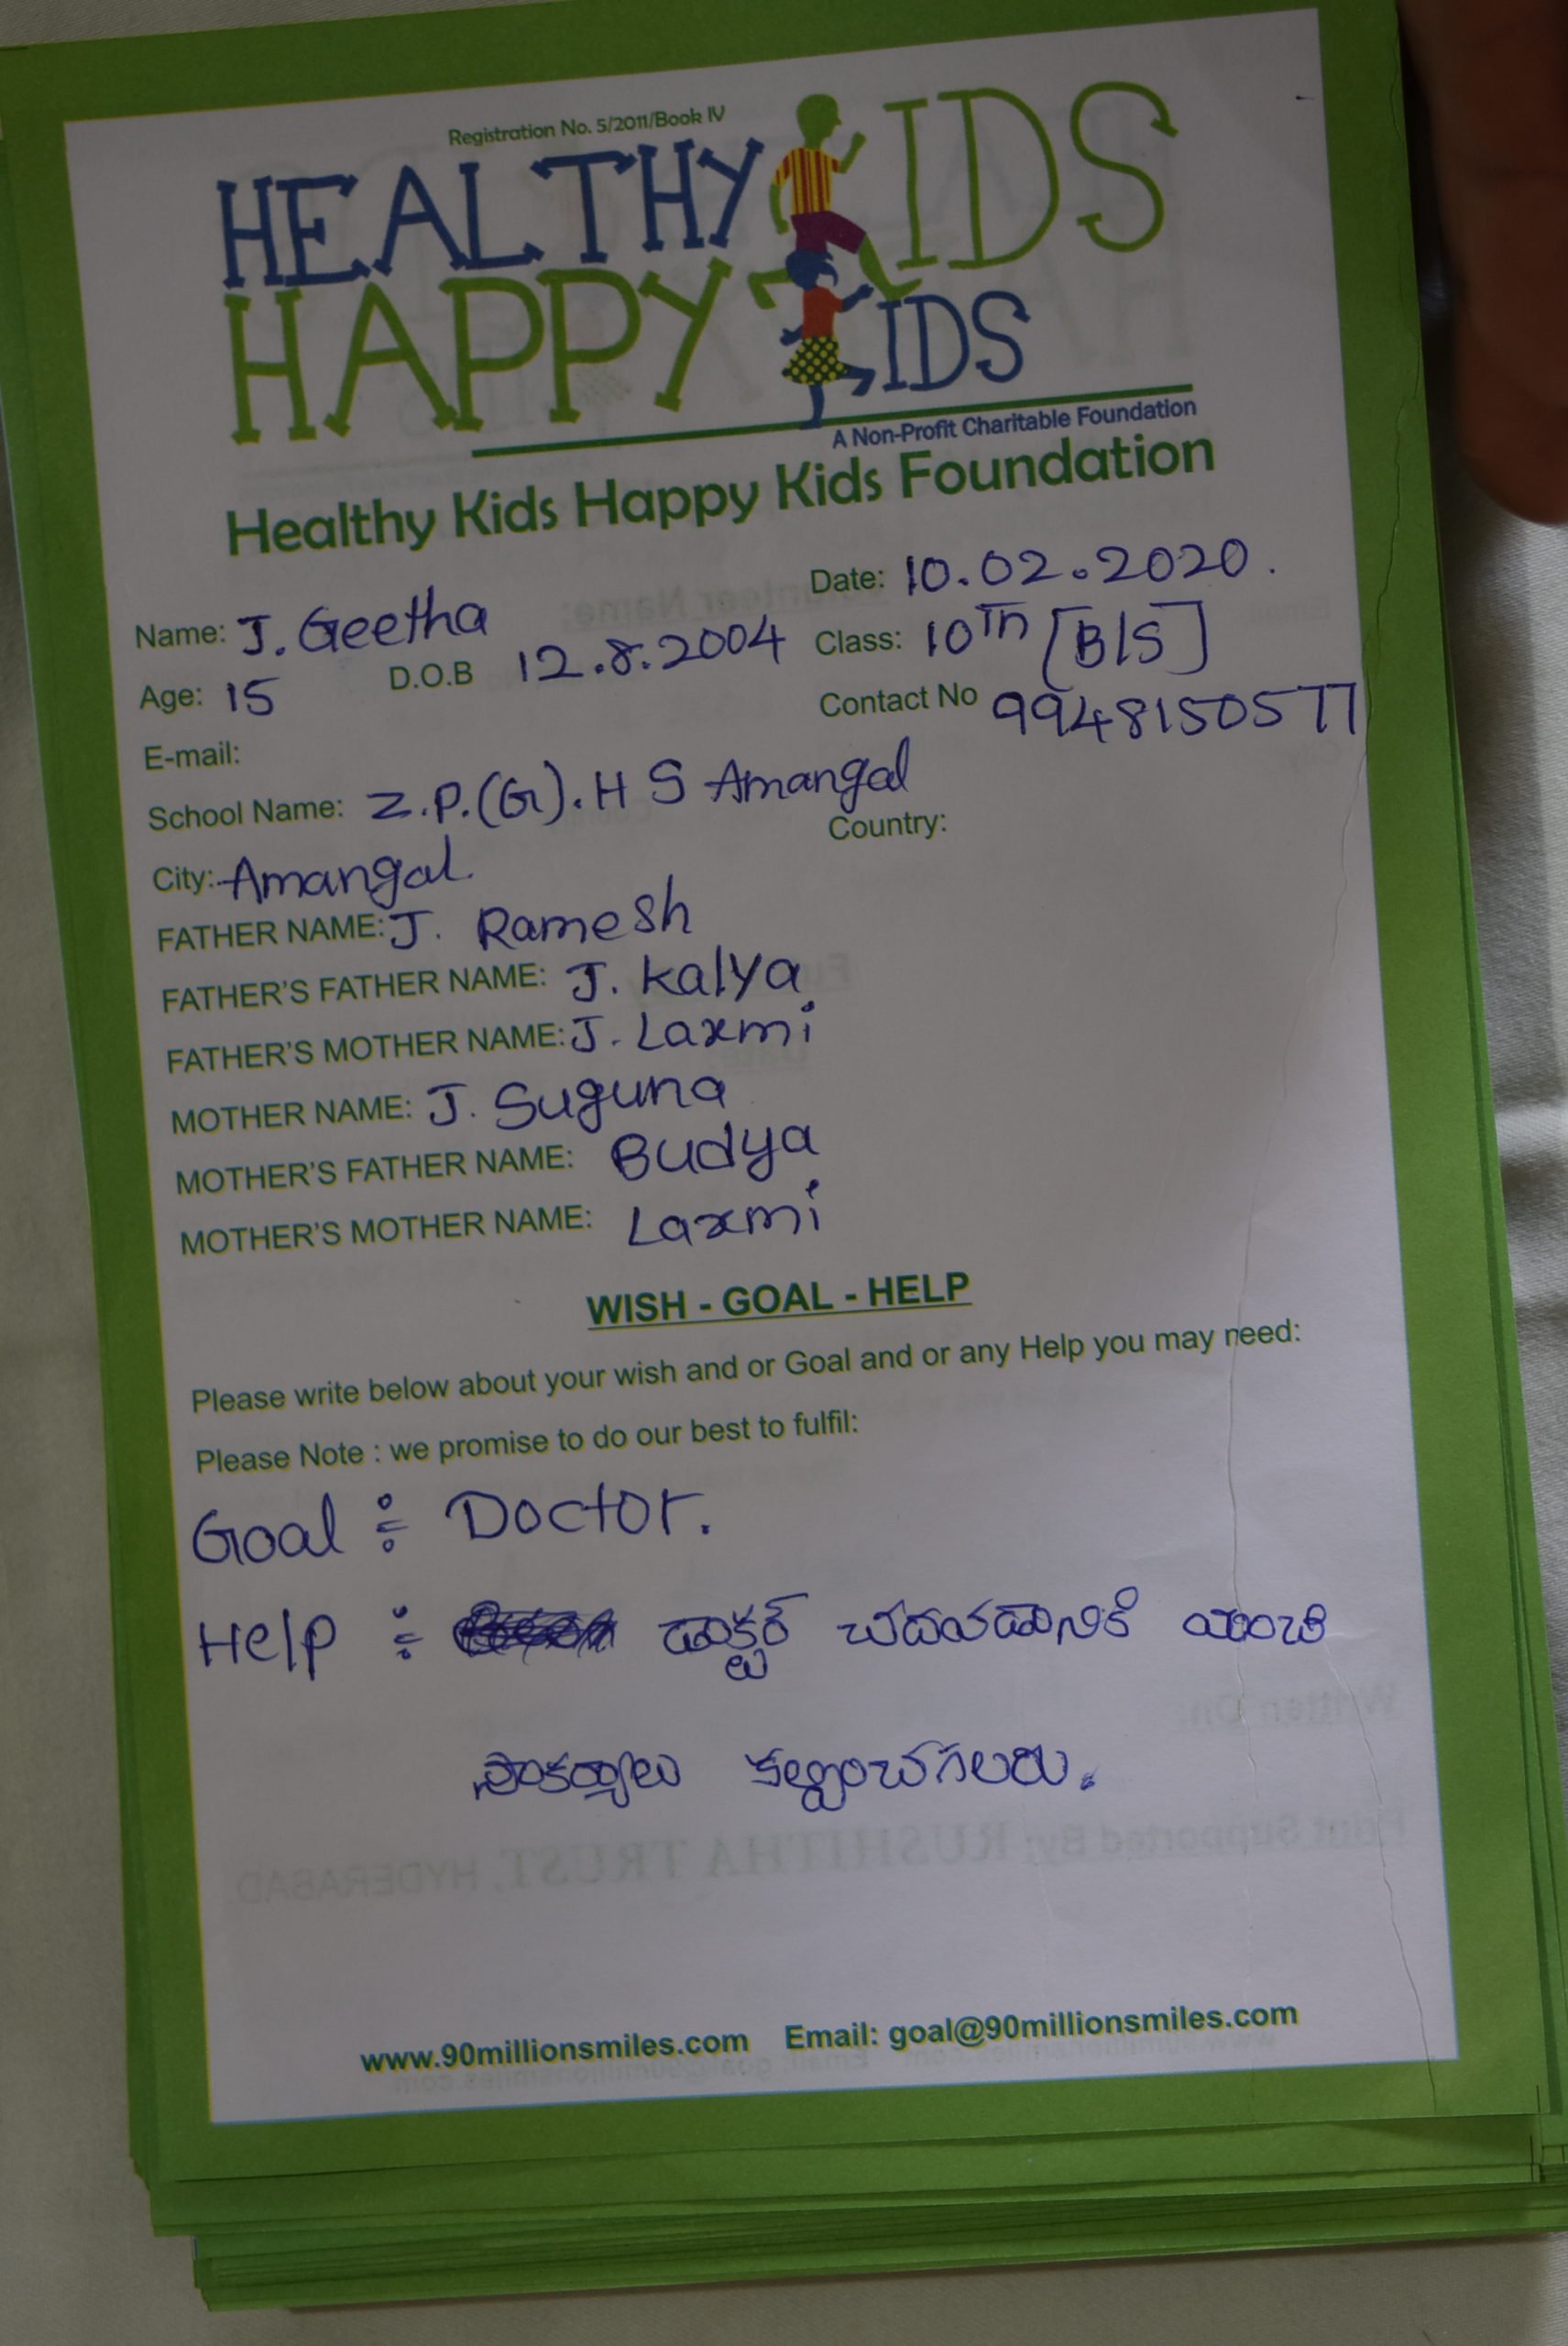 Registration No. 5/2011/Book IV
HEALTHY KIDS
HAPPY KIDS
A Non-Profit Charitable Foundation
Healthy Kids Happy Kids Foundation
Date: 10.02.2020.
Name: J. Geetha
D.O.B 12.8.2004 Class: 10Th [B/S]
Age: 15
Contact No 9948150577
E-mail:
School Name: Z.P.(G).H S Amangal
City: Amangal. Country:
FATHER NAME: J. Ramesh
FATHER'S FATHER NAME: J. Kalya
FATHER'S MOTHER NAME: J. Laxmi
MOTHER NAME: J. Suguna
MOTHER'S FATHER NAME: Budya
MOTHER'S MOTHER NAME: Laxmi
WISH - GOAL - HELP
Please write below about your wish and or Goal and or any Help you may need:
Please Note : we promise to do our best to fulfil:
Goal : Doctor.
Help : డాక్టర్ చదవడానికి మంచి
సౌకర్యాలు కల్పించగలరు.
Written On:
Print Supported By: RUSHITHA TRUST, HYDERABAD.
www.90millionsmiles.com Email: goal@90millionsmiles.com